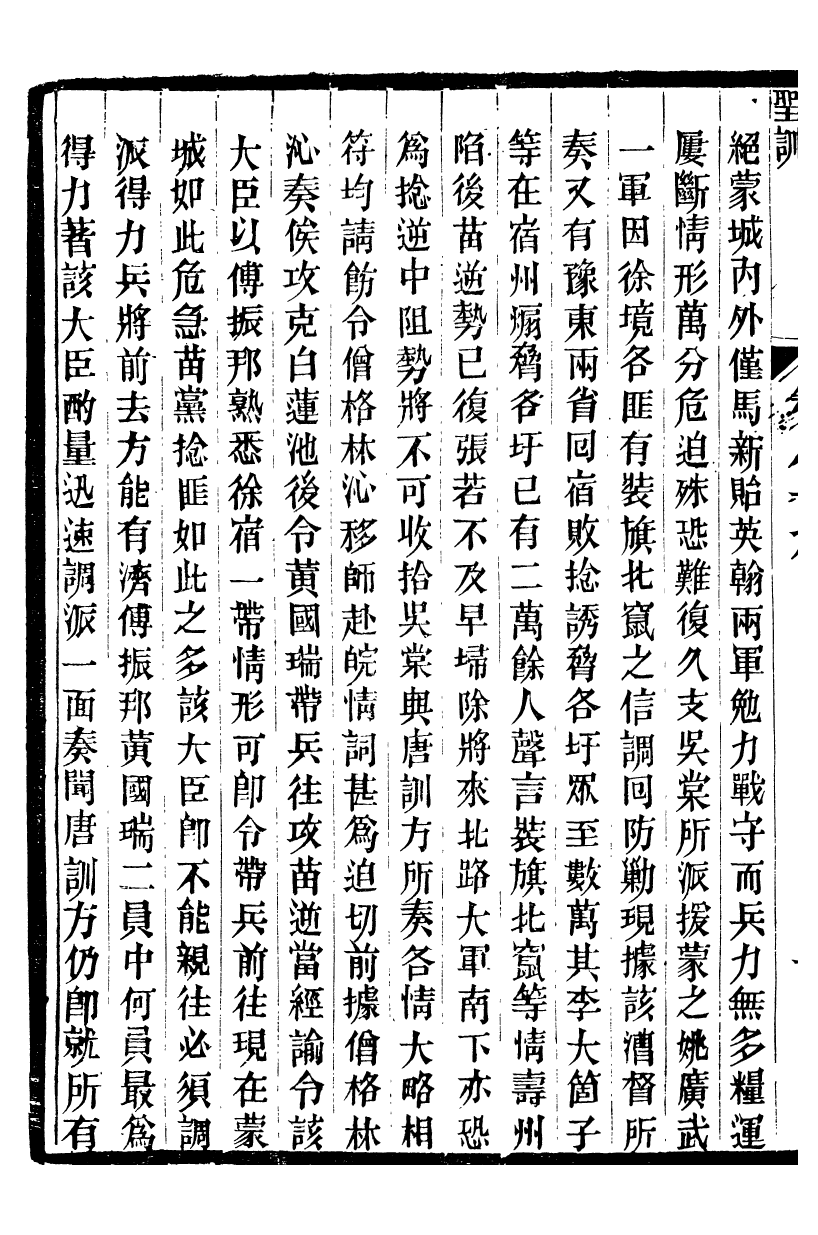 聖訓
絕蒙城內外僅馬新貽英翰兩軍勉力戰守而兵力無多糧運
屢斷情形萬分危迫殊恐難復久支吳棠所派援蒙之姚廣武
一軍因徐境各匪有裝旗北竄之信調回防勦現據該漕督所
奏又有豫東兩省回宿敗捻誘脅各圩眾至數萬其李大箇子
等在宿州煽脅各圩已有二萬餘人聲言裝旗北竄等情壽州
陷後苗逆勢已復張若不及早埽除將來北路大軍南下亦恐
爲捻逆中阻勢將不可收拾吳棠與唐訓方所奏各情大略相
符均請飭令僧格林沁移師赴皖情詞甚爲迫切前據僧格林
沁奏俟攻克白蓮池後令黃國瑞帶兵往攻苗逆當經諭令該
大臣以傅振邦熟悉徐宿一帶情形可卽令帶兵前往現在蒙
城如此危急苗黨捻匪如此之多該大臣卽不能親往必須調
派得力兵將前去方能有濟傅振邦黃國瑞二員中何員最爲
得力著該大臣酌量迅速調派一面奏聞唐訓方仍卽就所有